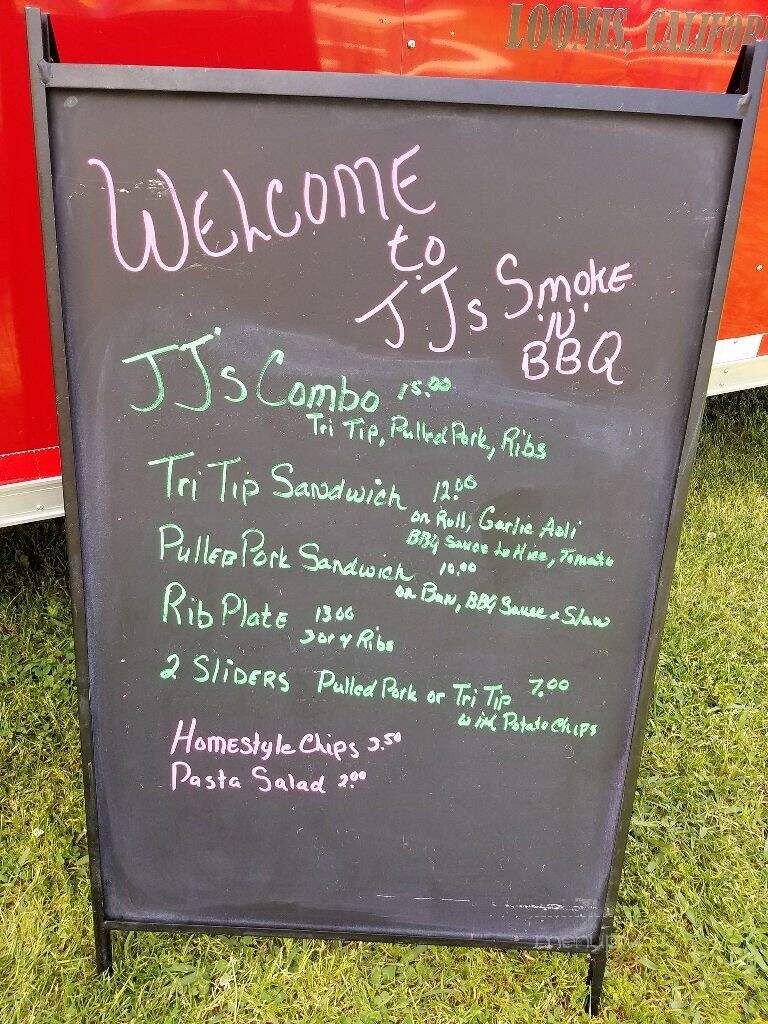 LOOMIS, CALIFOR
WELCOME
to
JJs SMOKE
'N'
BBQ
JJ's Combo 15.00
Tri Tip, Pulled Pork, Ribs
Tri Tip Sandwich 12.00
on Roll, Garlic Aoli
BBQ Sauce Lettuce, Tomato
Pulled Pork Sandwich 10.00
on Bun, BBQ Sauce & Slaw
Rib Plate 13.00
3 or 4 Ribs
2 SLIDERS Pulled Pork or Tri Tip 7.00
with Potato Chips
Homestyle Chips 3.50
Pasta Salad 2.00